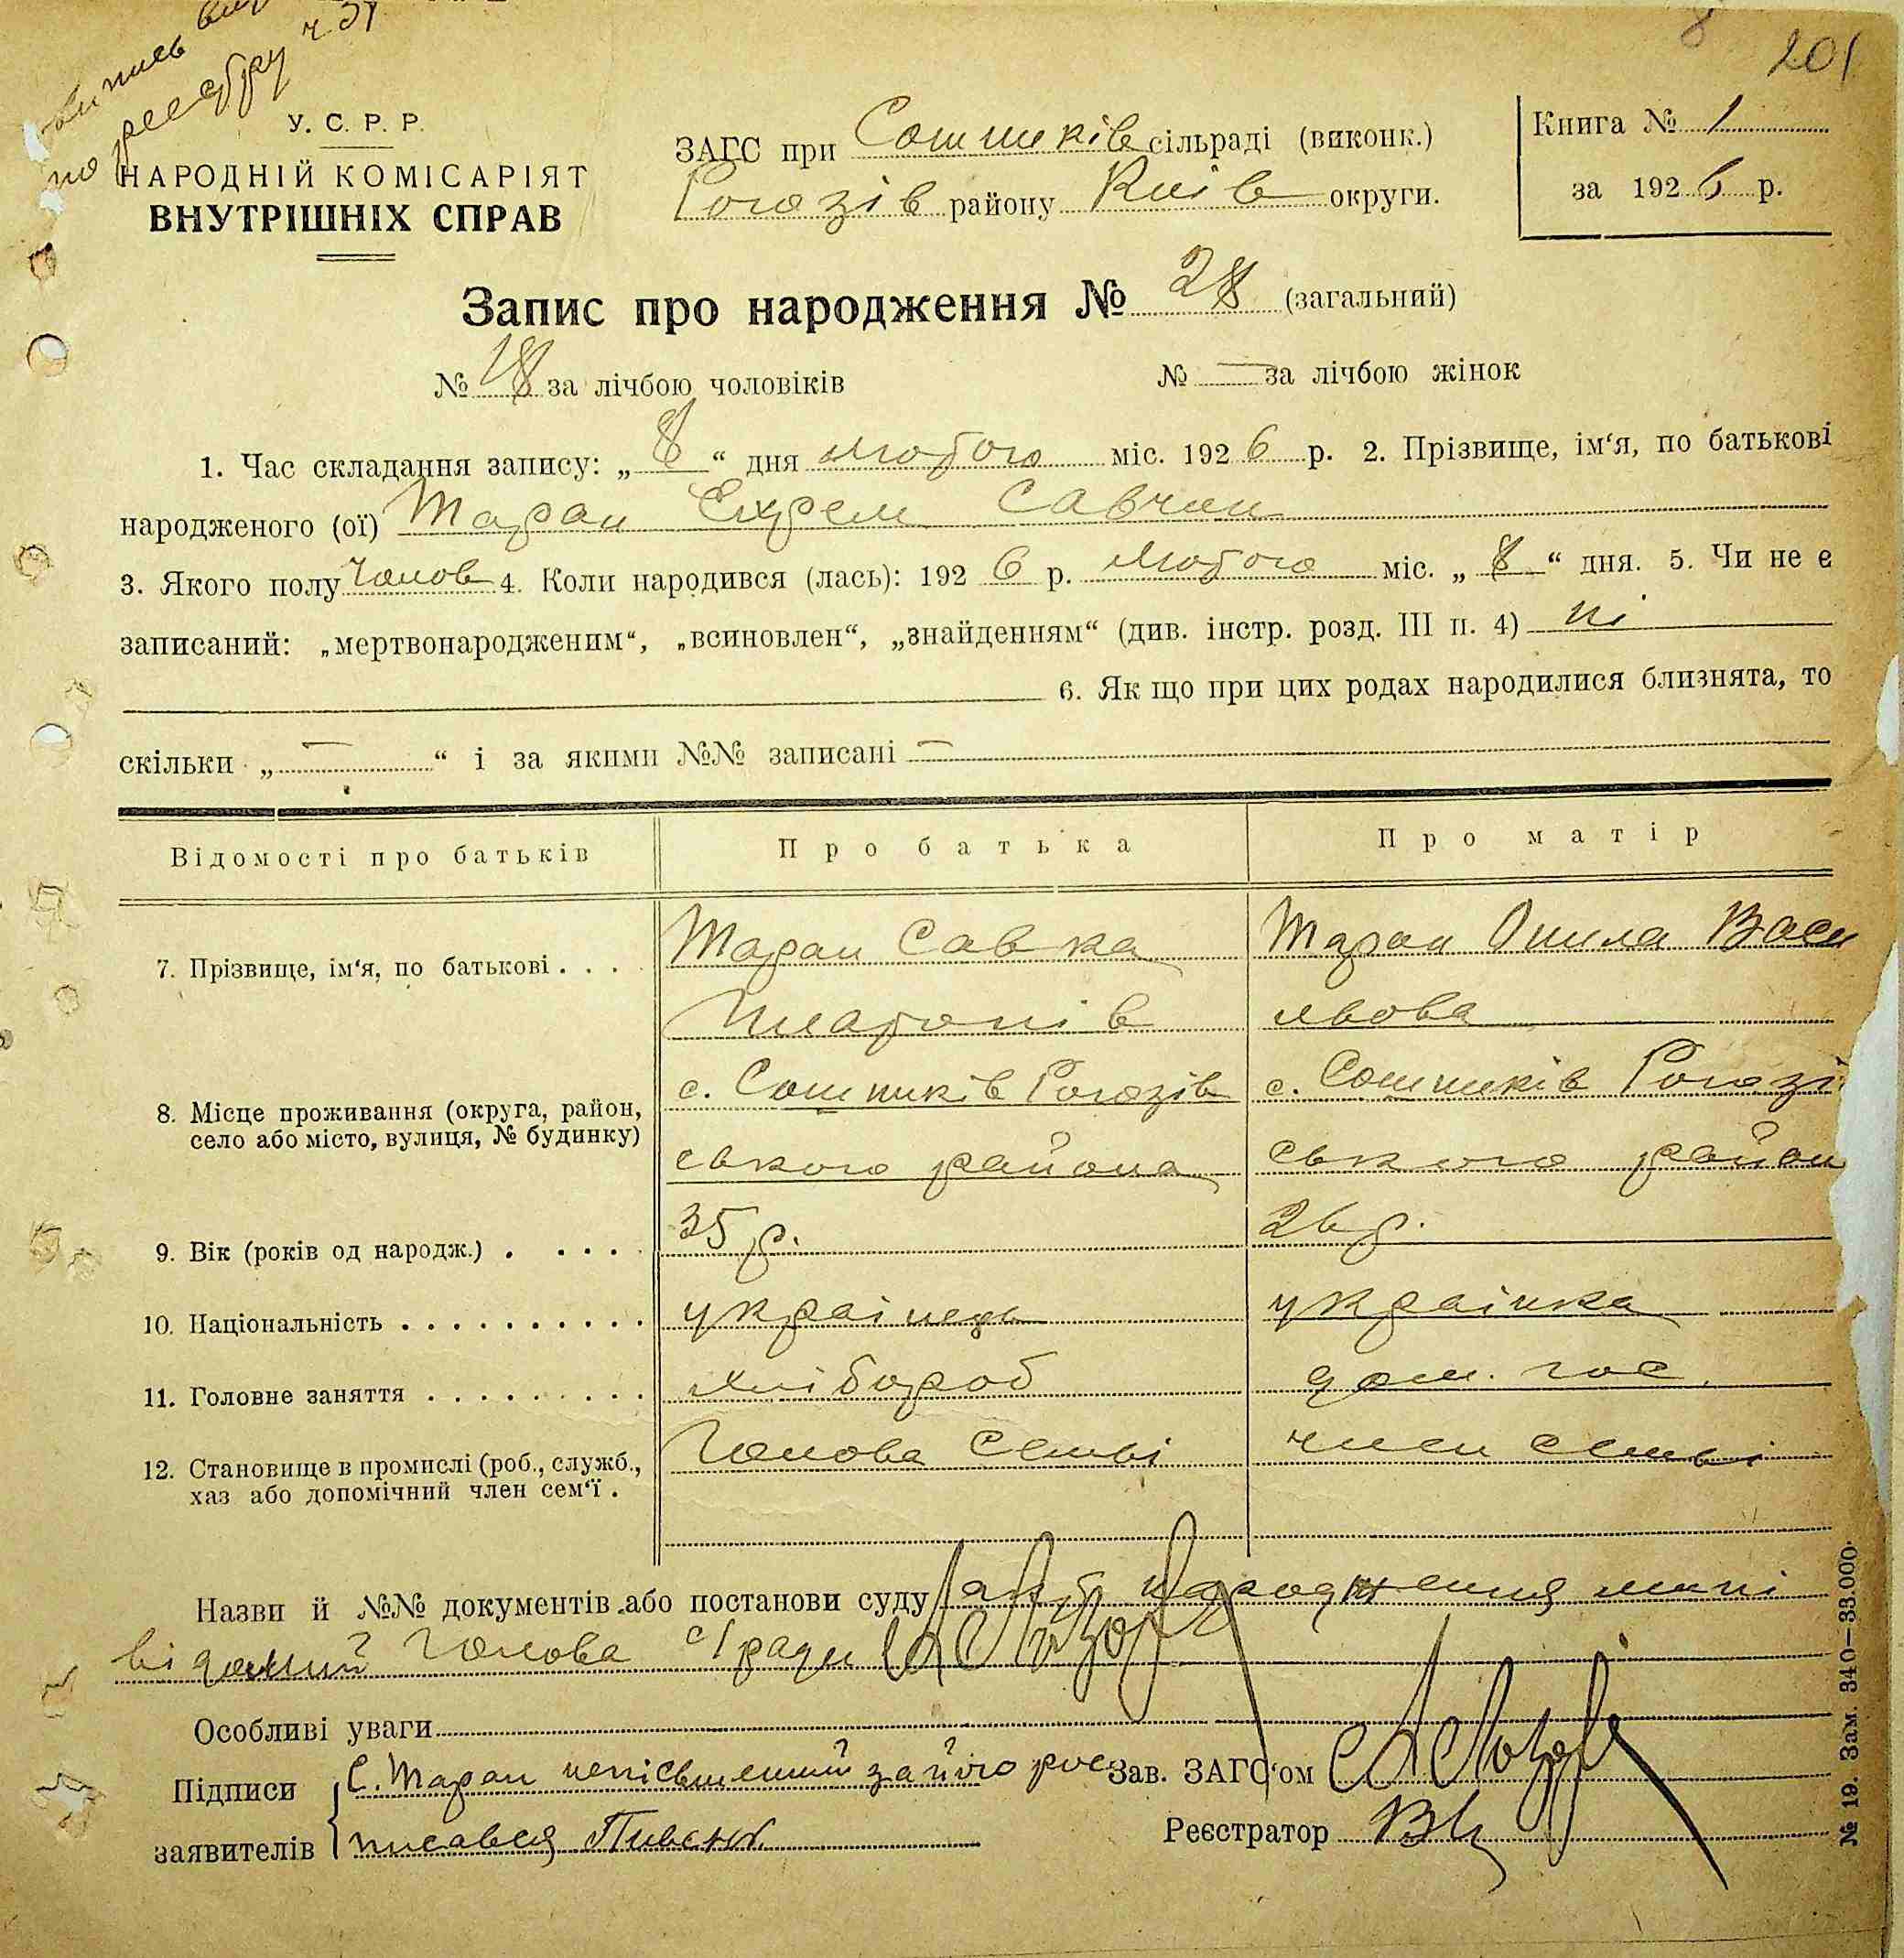 випись
по реєстру ч. 31
8 201
У. С. Р. Р.
НАРОДНІЙ КОМІСАРІЯТ
ВНУТРІШНІХ СПРАВ
ЗАГС при Сошників сільраді (виконк.)
Рогозів району Київ округи.
Книга № 1
за 1926 р.
Запис про народження № 28 (загальний)
№ 18 за лічбою чоловіків № — за лічбою жінок
1. Час складання запису: „ 8 “ дня лютого міс. 1926 р. 2. Прізвище, ім‘я, по батькові
народженого (ої) Таран Єхрем Савчин
3. Якого полу чолов 4. Коли народився (лась): 1926 р. лютого міс. „ 8 “ дня. 5. Чи не є
записаний: „мертвонародженим“, „всиновлен“, „знайденням“ (див. інстр. розд. III п. 4) ні
6. Як що при цих родах народилися близнята, то
скільки „ — “ і за якими №№ записані —
Відомості про батьків Про батька Про матір
7. Прізвище, ім‘я, по батькові . . . . Таран Савка Таран Олила Васи
Платонів льова
8. Місце проживання (округа, район, село або місто, вулиця, № будинку) с. Сошників Рогозів с. Сошників Рогозі
ського района ського район
9. Вік (років од народж.) . . . . . 35 р. 26 р.
10. Національність . . . . . . . . . . українець українка
11. Головне заняття . . . . . . . . . хлібороб дом. гос.
12. Становище в промислі (роб., служб., хаз або допомічний член сем‘ї . Голова семьі член семьі
Назви й №№ документів або постанови суду народження мині
відомий Голова с/ради
Особливі уваги
Підписи С. Таран неписьменний за його рос Зав. ЗАГС‘ом
заявителів писався Реєстратор
№ 19. Зам. 340—33.000.